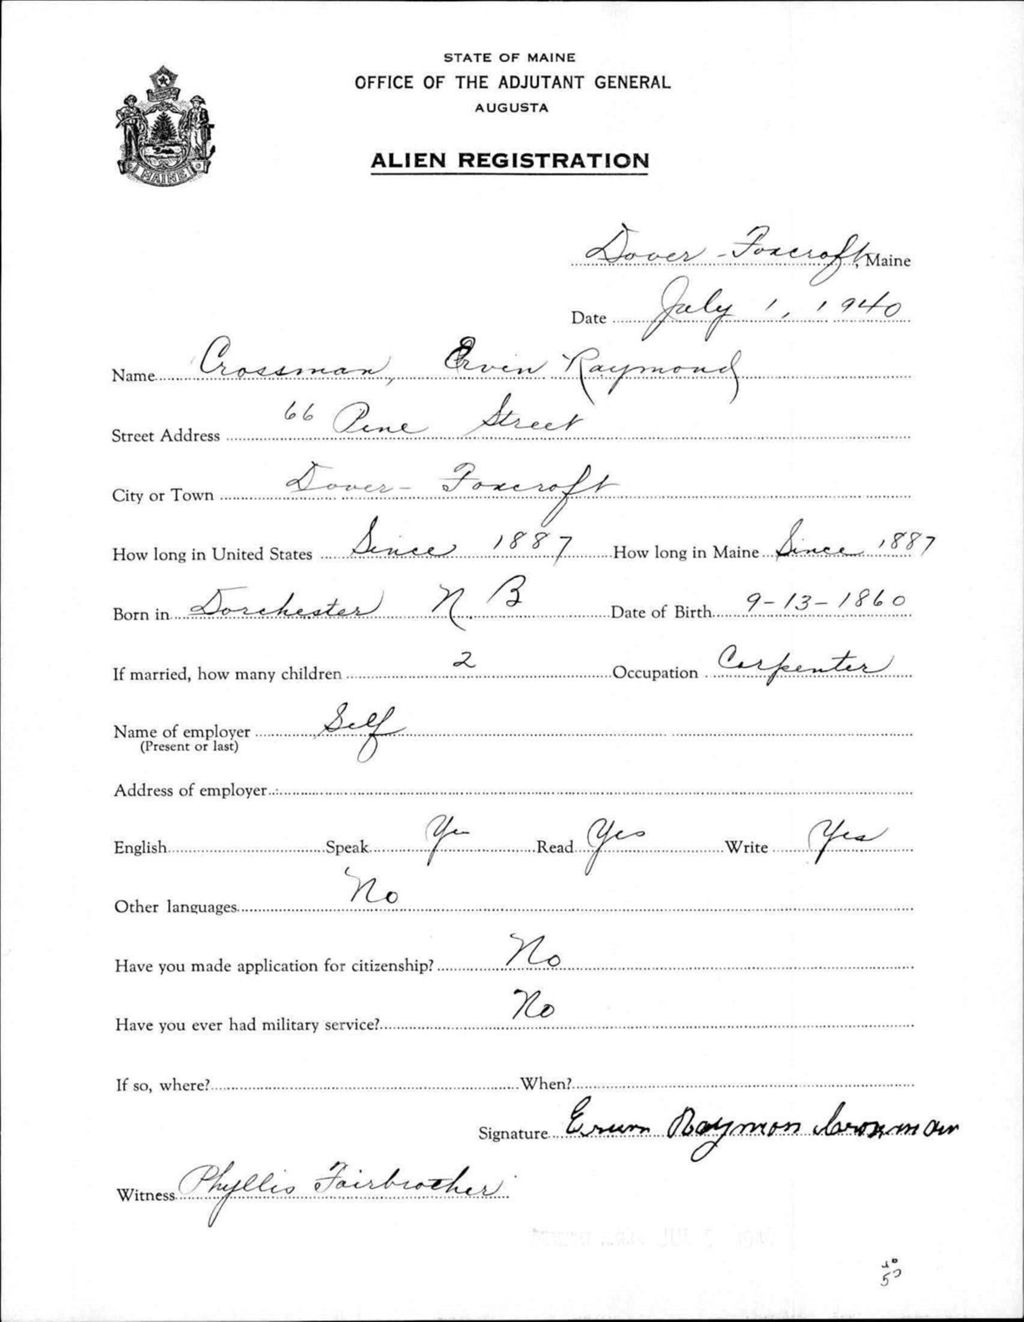 STATE OF MAINE
OFFICE OF THE ADJUTANT GENERAL
AUGUSTA
ALIEN REGISTRATION
MAINE
Dover-Foxcroft, Maine
Date July 1, 1940
Name Crossman, Ervin Raymond
Street Address 66 Pine Street
City or Town Dover-Foxcroft
How long in United States Since 1887 How long in Maine Since 1887
Born in Dorchester N B Date of Birth 9-13-1860
If married, how many children 2 Occupation Carpenter
Name of employer Self
(Present or last)
Address of employer
English Speak Yes Read Yes Write Yes
Other languages No
Have you made application for citizenship? No
Have you ever had military service? No
If so, where? When?
Signature Raymon
Witness Phyllis Fairbrother